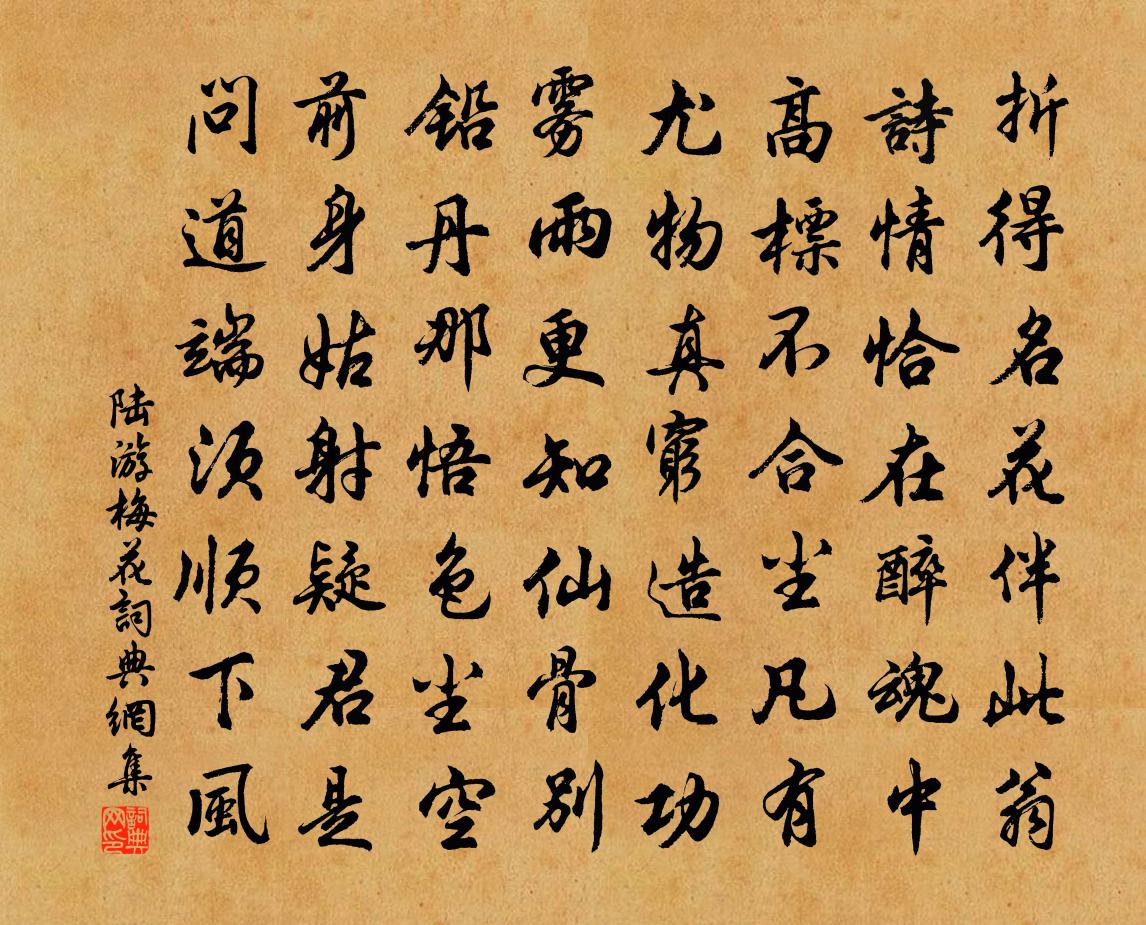 折得名花伴此翁
詩情恰在醉魂中
高標不合塵凡有
尤物真窮造化功
霧雨更知仙骨別
铅丹那悟色塵空
前身姑射疑君是
問道端須順下風
陆游梅花詞典網集
詞典网印